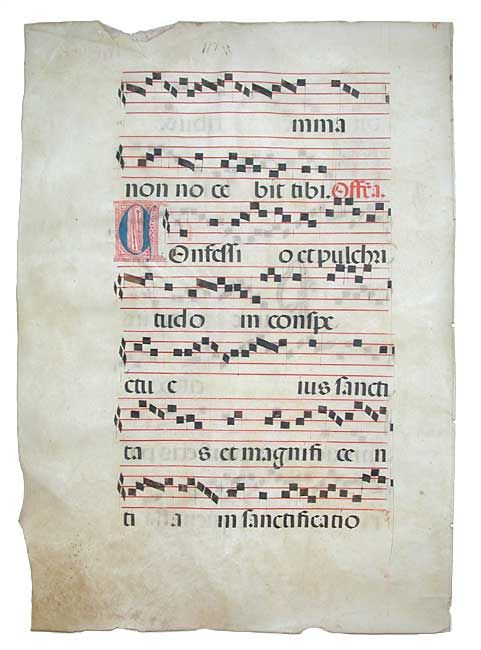 mma
non no ce bit tibi. Offea.
COnfessi o et pulchri
tudo in conspe
ctu e ius sancti
ta s et magnifi ce n
ti a in sanctificatio